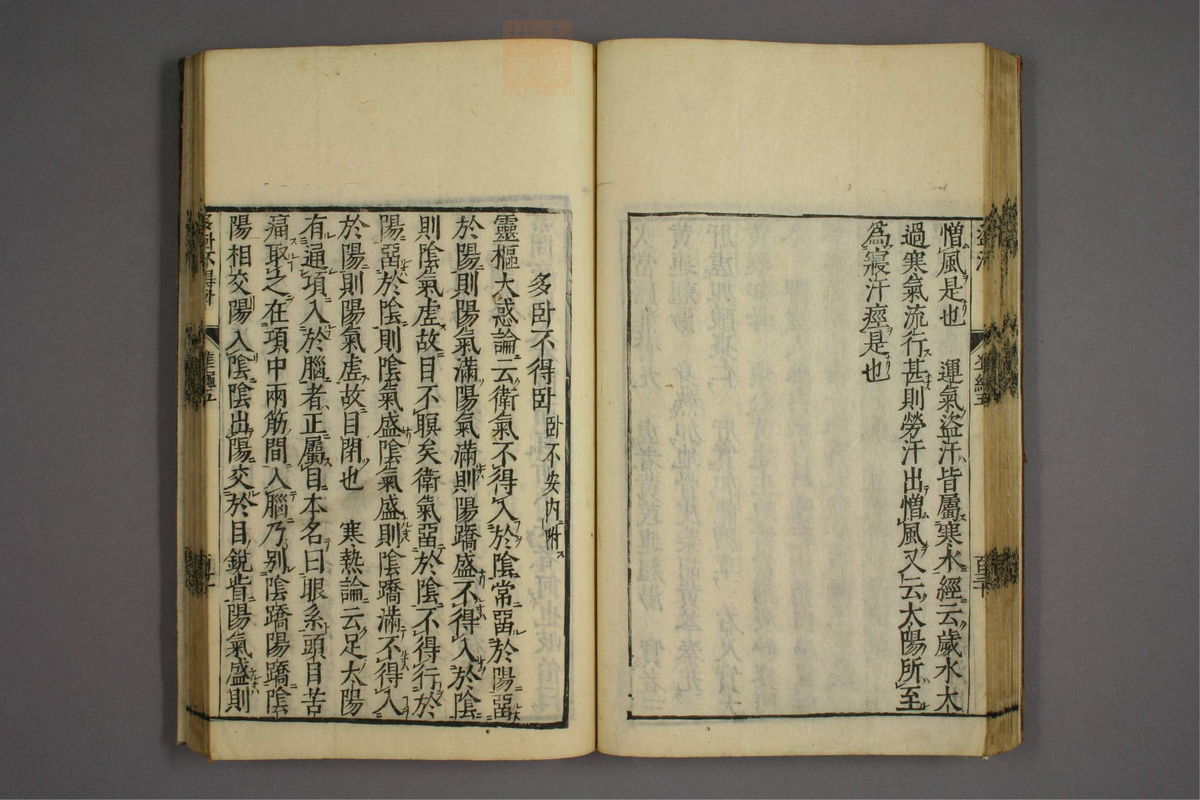 憎風是也　運氣盜汗皆屬寒水經云歲水太
過寒氣流行甚則勞汗出憎風又云太陽所至
爲寢汗痙是也
多臥不得臥 臥不安內附
靈樞大惑論云衛氣不得入於陰常畱於陽畱
於陽則陽氣滿陽氣滿則陽蹻盛不得入於陰
則陰氣虛故目不瞑矣衛氣畱於陰不得行於
陽畱於陰則陰氣盛陰氣盛則陰蹻滿不得入
於陽則陽氣虛故目閉也　寒熱論云足太陽
有通項入於腦者正屬目本名曰眼系頭目苦
痛取之在項中兩筋間入腦乃別陰蹻陽蹻陰
陽相交陽入陰陰出陽交於目銳眥陽氣盛則